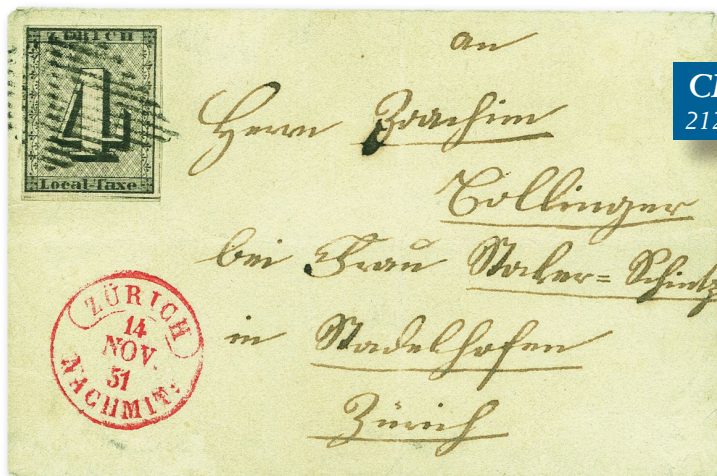 ZÜRICH
4
Local-Taxe
an
Herrn Joachim
Bollinger
bei Frau
in Stadelhofen
Zürich
ZÜRICH
14
NOV.
51
NACHMITT.
212